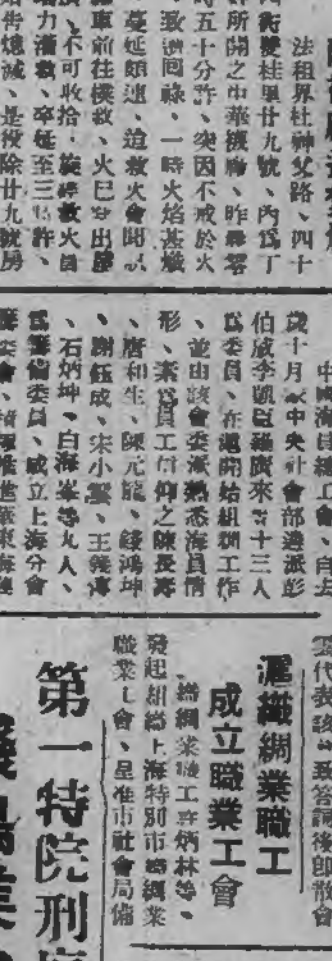 法租界杜神父路、四十
街雙桂里廿九號、內爲丁
所開之中華襪廠、昨晨零
時五十分許、突因不戒於火
致遭回祿、一時火焰甚熾
蔓延頗速、迨救火會聞訊
車前往撲救、火已穿出屋
不可收拾、旋經救火員
力灌救、卒延至三時許、
始告熄滅、是役除廿九號房
中國海員總工會、自去
歲十月 中央社會部遴派彭
伯威李 來等十三人
爲委員、在滬開始組織工作
、並由該會委派熟悉海員情
形、素爲員工信仰之陳長壽
、唐和生、陳元龍、錢鴻坤
、謝鈺成、宋小 、王
、石炳坤、白海峯等九人、
爲籌備委員、成立上海分會
代表 致答詞後即散會
滬織綢業職工
成立職業工會
織綢業職工許炳林等、
發起組織上海特別市織綢業
職業工會、呈准市社會局備
第一特院刑